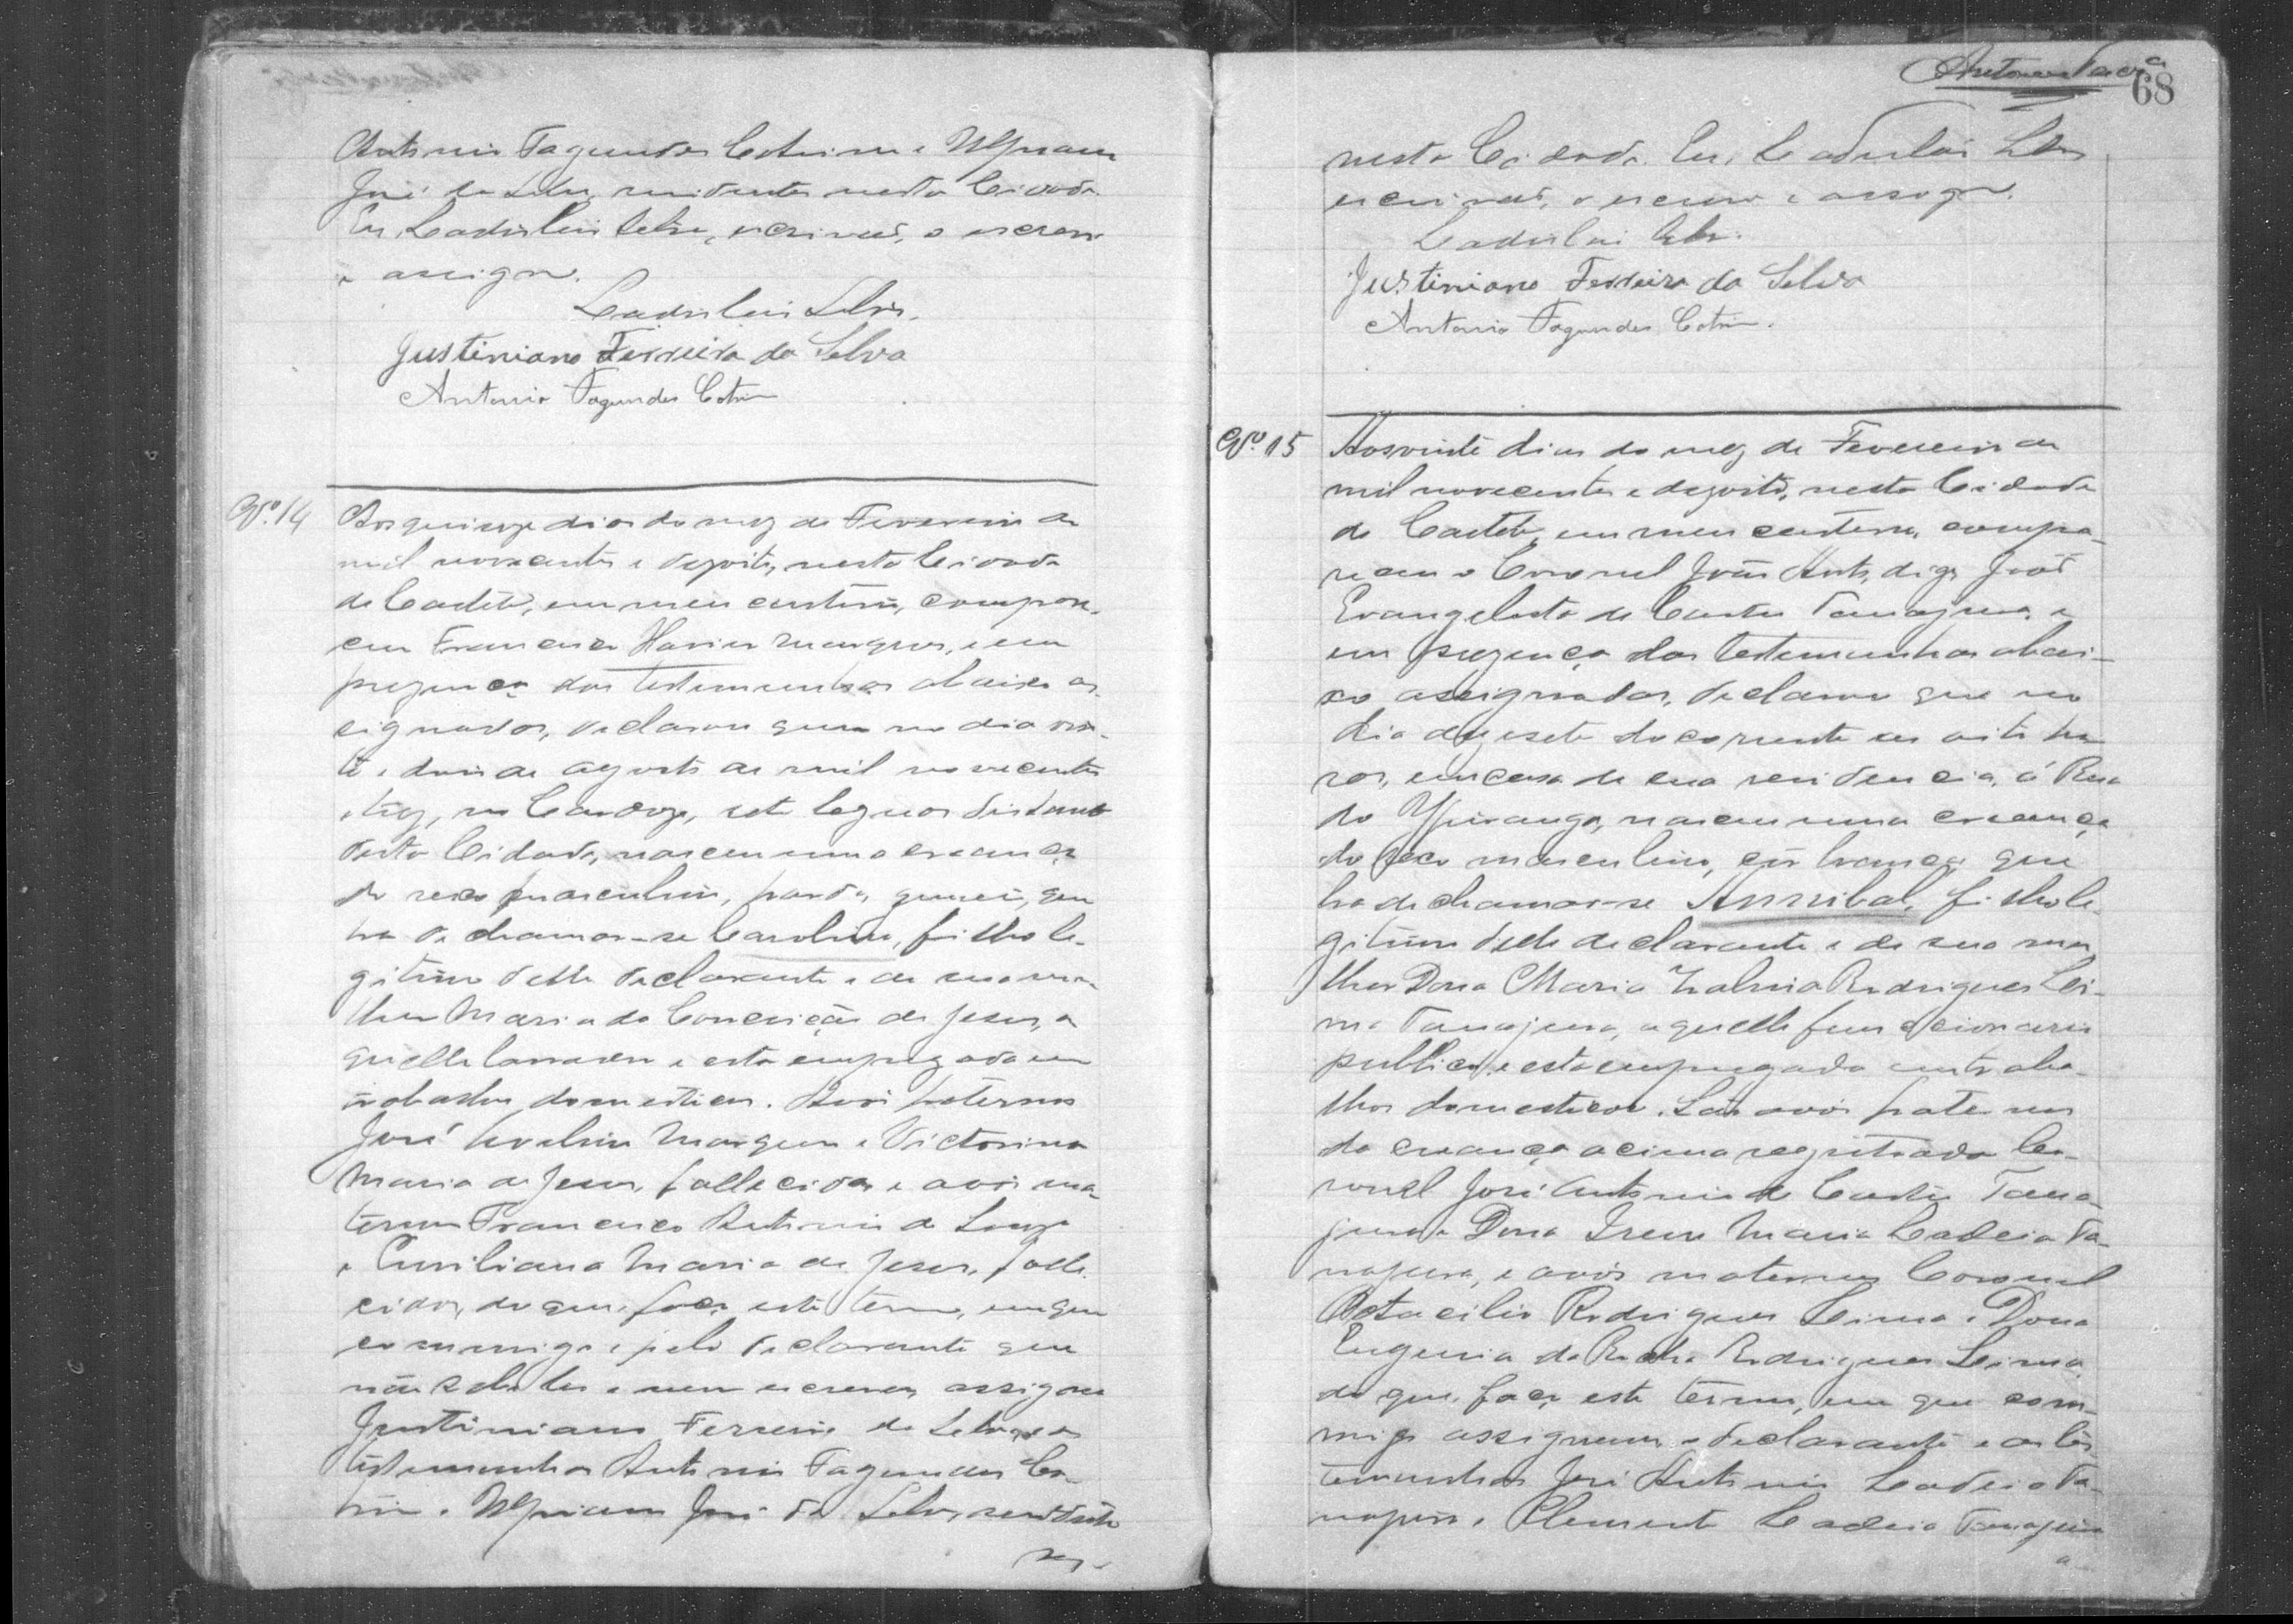 Antonio Fagundes Cotrim e Ulpiam
José da Silva, residentes nesta Cidade.
Eu, Ladislau Silva, escrivão, o escrevi
e assigno.
Ladislau Silva.
Justiniano Ferreira da Silva
Antonio Fagundes Cotrim
Nº. 14
Aos quinze dias do mez de Fevereiro de
mil novecentos e dezoito, nesta Cidade
de Caeteté, em meu cartorio, compare-
ceu Francisco Xavier Marques, e em
prezença das testemunhas abaixo as-
signadas, declarou que no dia vin-
te e dois de agosto de mil novecentos
e dez, no Cardozo, sete leguas distante
desta Cidade, nasceu uma creança
do sexo masculino, parda, que
ha de chamar-se Carolino, filho le-
gitimo delle declarante e de sua mu-
lher Maria da Conceição de Jesus, a
quelle lavrador e esta empregada em
trabalhos domesticos. Avós paternos
José Avelino Marques e Victorina
Maria de Jesus, fallecidos e avós ma-
ternos Francisco Antonio de Souza
e Emiliana Maria de Jesus, falle-
cidos, do que, faço este termo, em que
commigo e pelo declarante que
não sabe ler e nem escrever, assigna
Justiniano Ferreira da Silva e as
testemunhas Antonio Fagundes Co-
trim e Ulpiam José da Silva, residente
68
nesta Cidade. Eu, Ladislau Silva
escrivão, o escrevi e assigno.
Ladislau Silva.
Justiniano Ferreira da Silva
Antonio Fagundes Cotrim.
Nº. 15
Aos vinte dias do mez de Fevereiro de
mil novecentos e dezoito, nesta Cidade
de Caeteté, em meu cartorio, compa-
receu o Coronel João Ants, digo João
Evangelista de Castro Tanajura, e
em prezença das testemunhas abai-
xo assignadas, declarou que no
dia dezesete do corrente as oito ho
ras, em casa de sua residencia, á Rua
do Ypiranga, nasceu uma creança
do sexo masculino, côr branca, que
ha de chamar-se Annibal, filho le-
gitimo delle declarante e de sua mu
lher Dona Maria Rodrigues Li-
ma Tanajura, aquelle funccionario
publico e esta empregada em traba-
lhos domesticos. São avós paternos
da creança acima registrada Co-
ronel José Antonio de Castro Tana-
jura e Dona Maria Ladeia Ta-
najura, e avós maternos Coronel
Otacilio Rodrigues Lima e Dona
Eugenia da Rocha Rodrigues Lima,
do que, faço este termo, em que com-
migo assignam o declarante e as tes-
temunhas José Antonio Ladeia Ta-
najura e Clemente Ladeia Tanajura